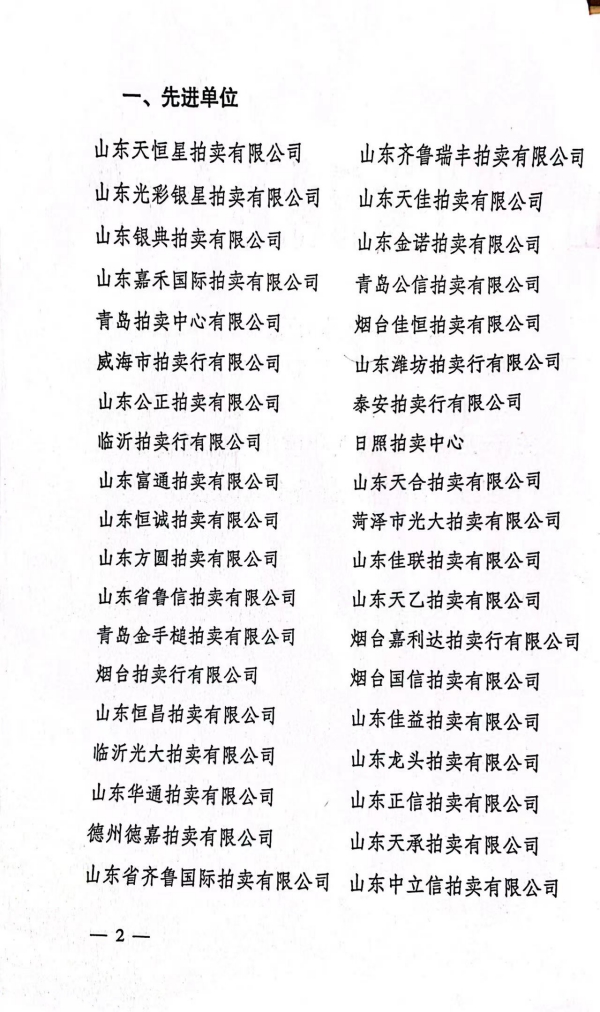 一、先进单位
山东天恒星拍卖有限公司 山东齐鲁瑞丰拍卖有限公司
山东光彩银星拍卖有限公司 山东天佳拍卖有限公司
山东银典拍卖有限公司 山东金诺拍卖有限公司
山东嘉禾国际拍卖有限公司 青岛公信拍卖有限公司
青岛拍卖中心有限公司 烟台佳恒拍卖有限公司
威海市拍卖行有限公司 山东潍坊拍卖行有限公司
山东公正拍卖有限公司 泰安拍卖行有限公司
临沂拍卖行有限公司 日照拍卖中心
山东富通拍卖有限公司 山东天合拍卖有限公司
山东恒诚拍卖有限公司 菏泽市光大拍卖有限公司
山东方圆拍卖有限公司 山东佳联拍卖有限公司
山东省鲁信拍卖有限公司 山东天乙拍卖有限公司
青岛金手槌拍卖有限公司 烟台嘉利达拍卖行有限公司
烟台拍卖行有限公司 烟台国信拍卖有限公司
山东恒昌拍卖有限公司 山东佳益拍卖有限公司
临沂光大拍卖有限公司 山东龙头拍卖有限公司
山东华通拍卖有限公司 山东正信拍卖有限公司
德州德嘉拍卖有限公司 山东天承拍卖有限公司
山东省齐鲁国际拍卖有限公司 山东中立信拍卖有限公司
— 2 —